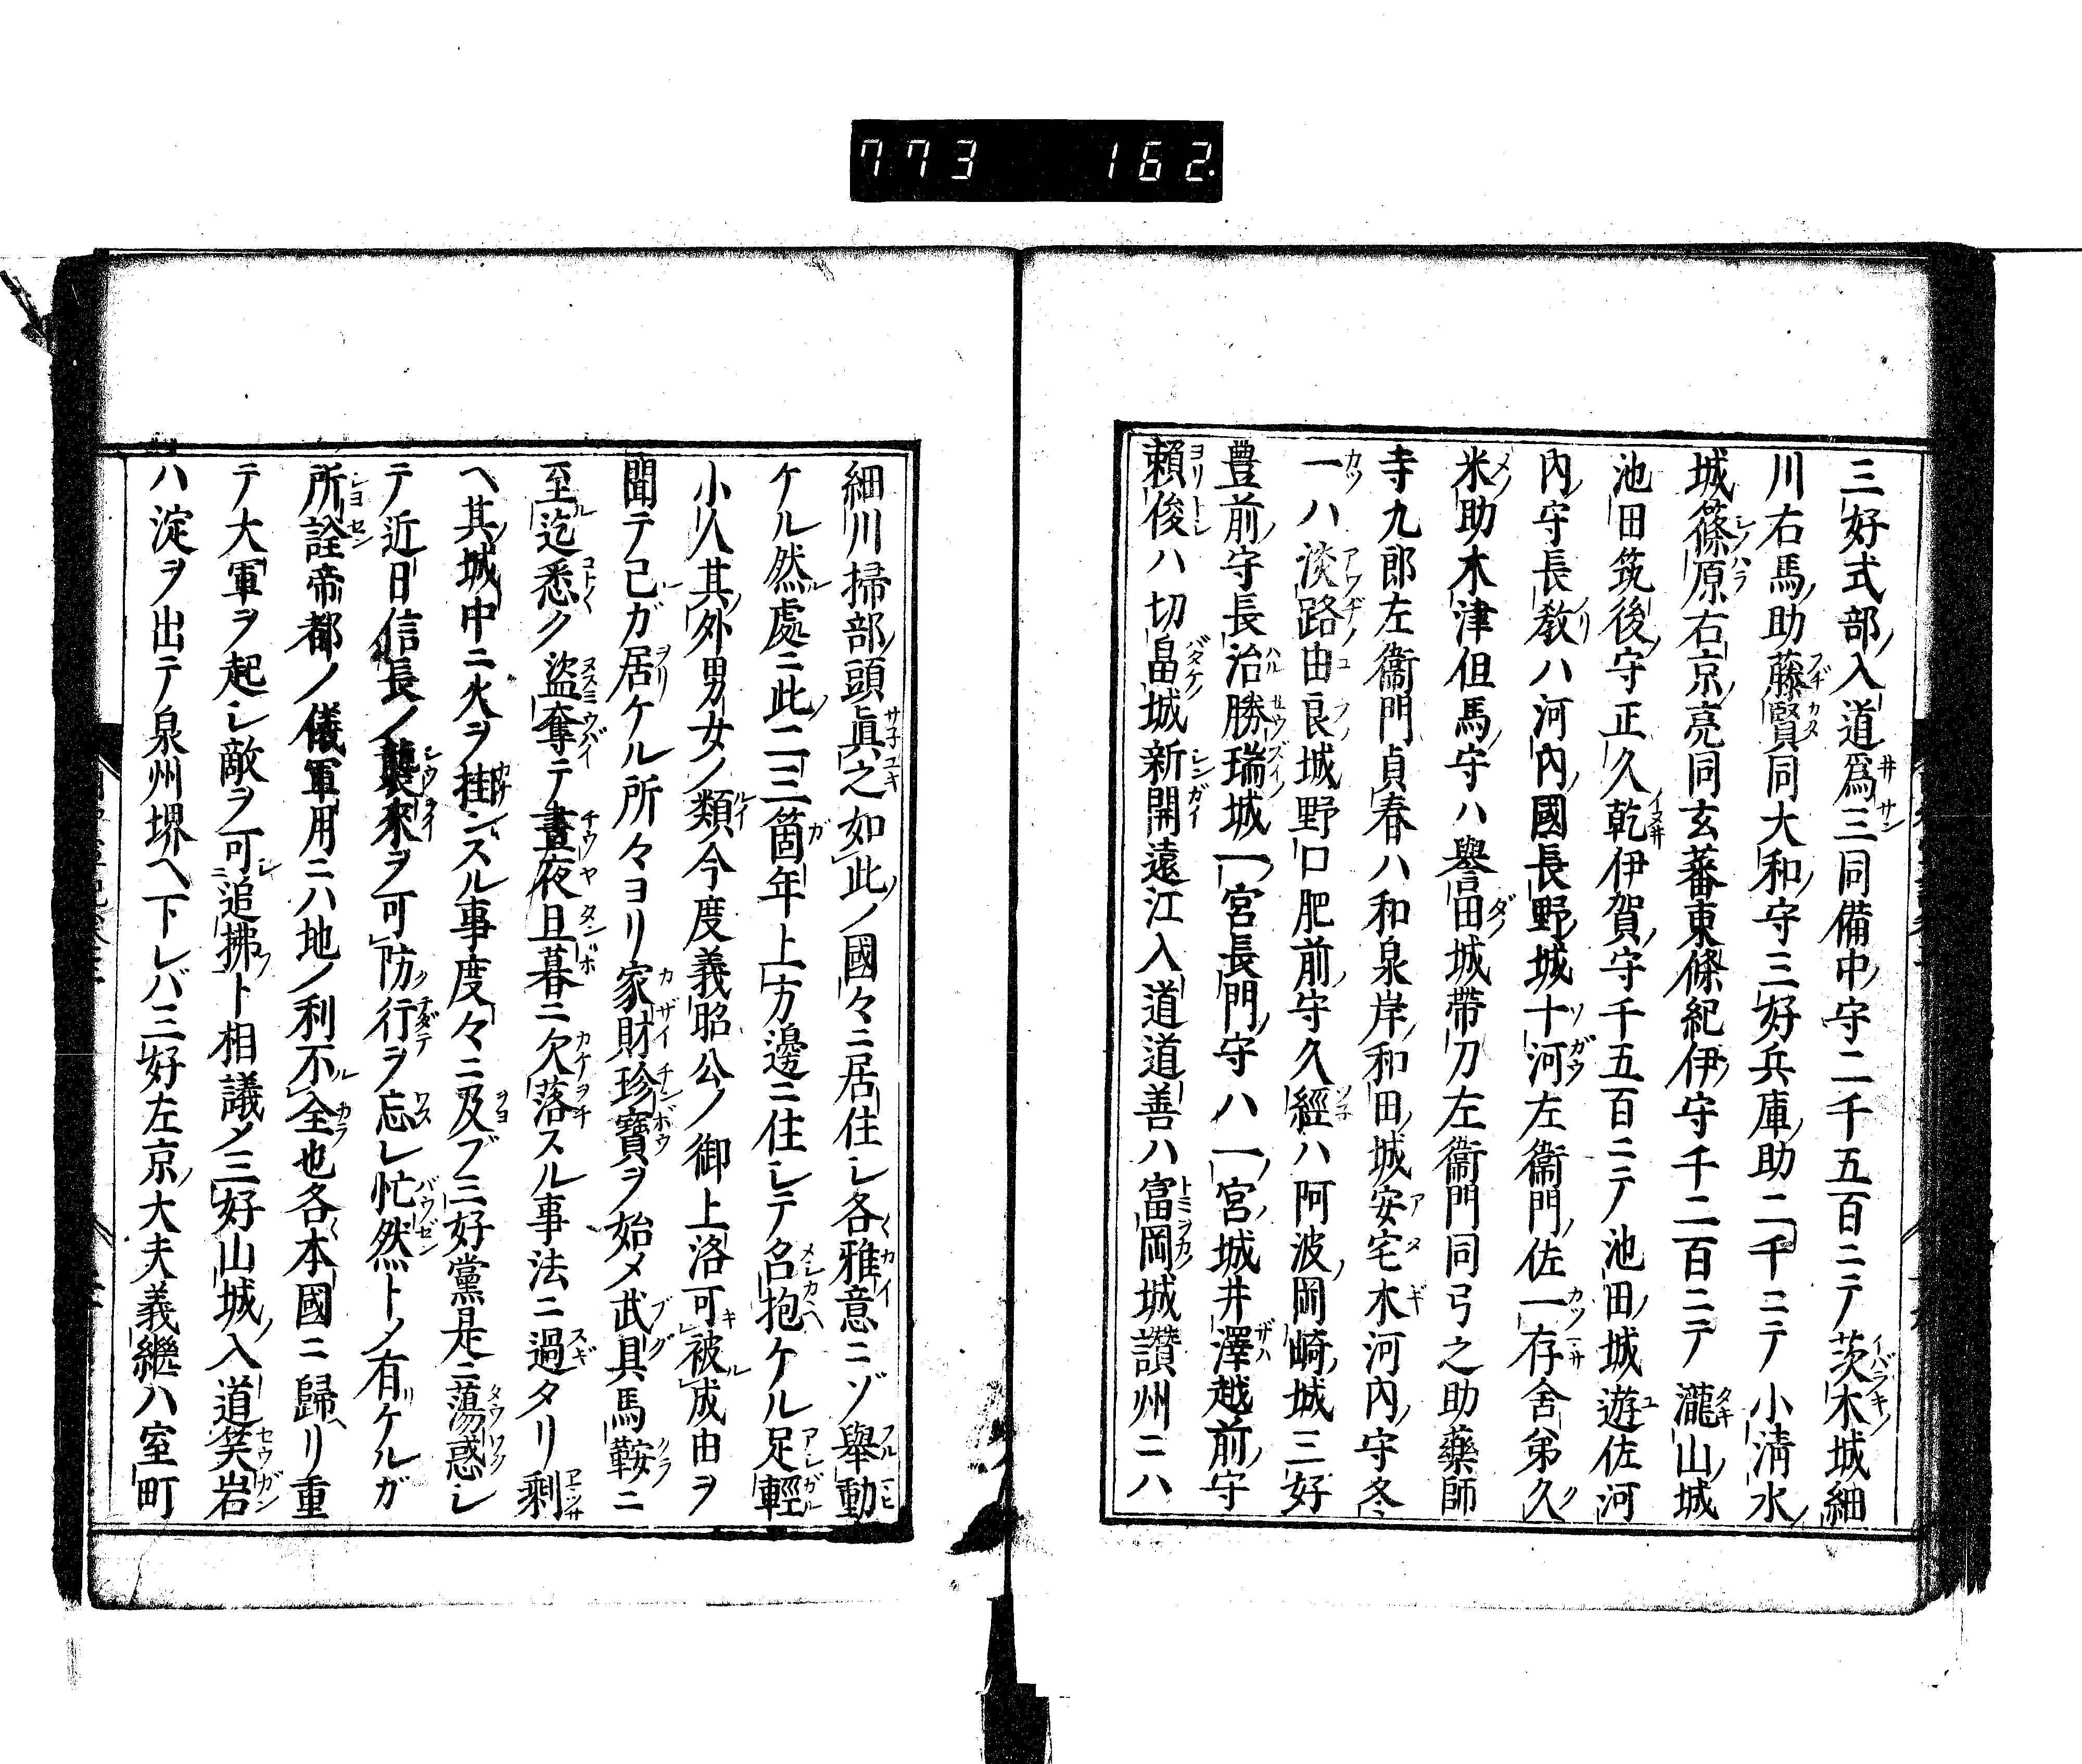 773 162.
三好式部入道爲三同備中守二千五百ニテ茨木城細
川右馬助藤賢同大和守三好兵庫助二千ニテ小清水
城篠原右京亮同玄蕃東條紀伊守千二百ニテ瀧山城
池田筑後守正久乾伊賀守千五百ニテ池田城遊佐河
內守長敎ハ河內國長野城十河左衞門佐一存舍弟久
米助木津但馬守ハ譽田城帶刀左衞門同弓之助藥師
寺九郎左衞門貞春ハ和泉岸和田城安宅木河內守冬
一ハ淡路由良城野口肥前守久經ハ阿波岡崎城三好
豊前守長治勝瑞城一宮長門守ハ一宮城井澤越前守
賴俊ハ切畠城新開遠江入道道善ハ富岡城讃州ニハ
細川掃部頭眞之如此ノ國々ニ居住シ各雅意ニゾ舉動
ケル然處ニ此二三箇年上方邊ニ住シテ召抱ケル足輕
小人其外男女ノ類今度義昭公ノ御上洛可被成由ヲ
聞テ己ガ居ケル所々ヨリ家財珍寶ヲ始メ武具馬鞍ニ
至迄悉ク盜奪テ晝夜旦暮ニ欠落スル事法ニ過タリ剩
ヘ其城中ニ火ヲ掛ンスル事度々ニ及ブ三好黨是ニ蕩惑シ
テ近日信長ノ襲來ヲ可防行ヲ忘レ忙然トメ有ケルガ
所詮帝都ノ儀軍用ニハ地ノ利不全也各本國ニ歸リ重
テ大軍ヲ起シ敵ヲ可追拂ト相議メ三好山城入道笑岩
ハ淀ヲ出テ泉州堺ヘ下レバ三好左京大夫義繼ハ室町